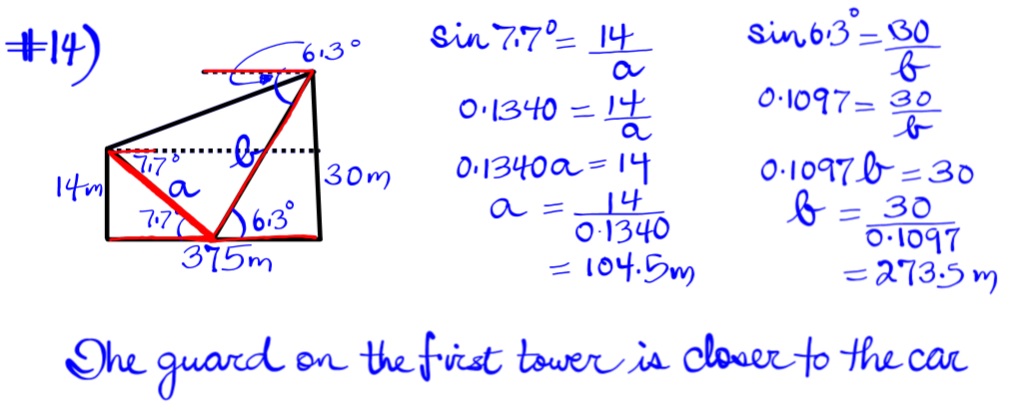 #14)
6.3°
7.7°
b
14m
a
30m
7.7°
6.3°
375m
sin 7.7° = 14/a
0.1340 = 14/a
0.1340a = 14
a = 14/0.1340
= 104.5m
sin 6.3° = 30/b
0.1097 = 30/b
0.1097b = 30
b = 30/0.1097
= 273.5 m
The guard on the first tower is closer to the car